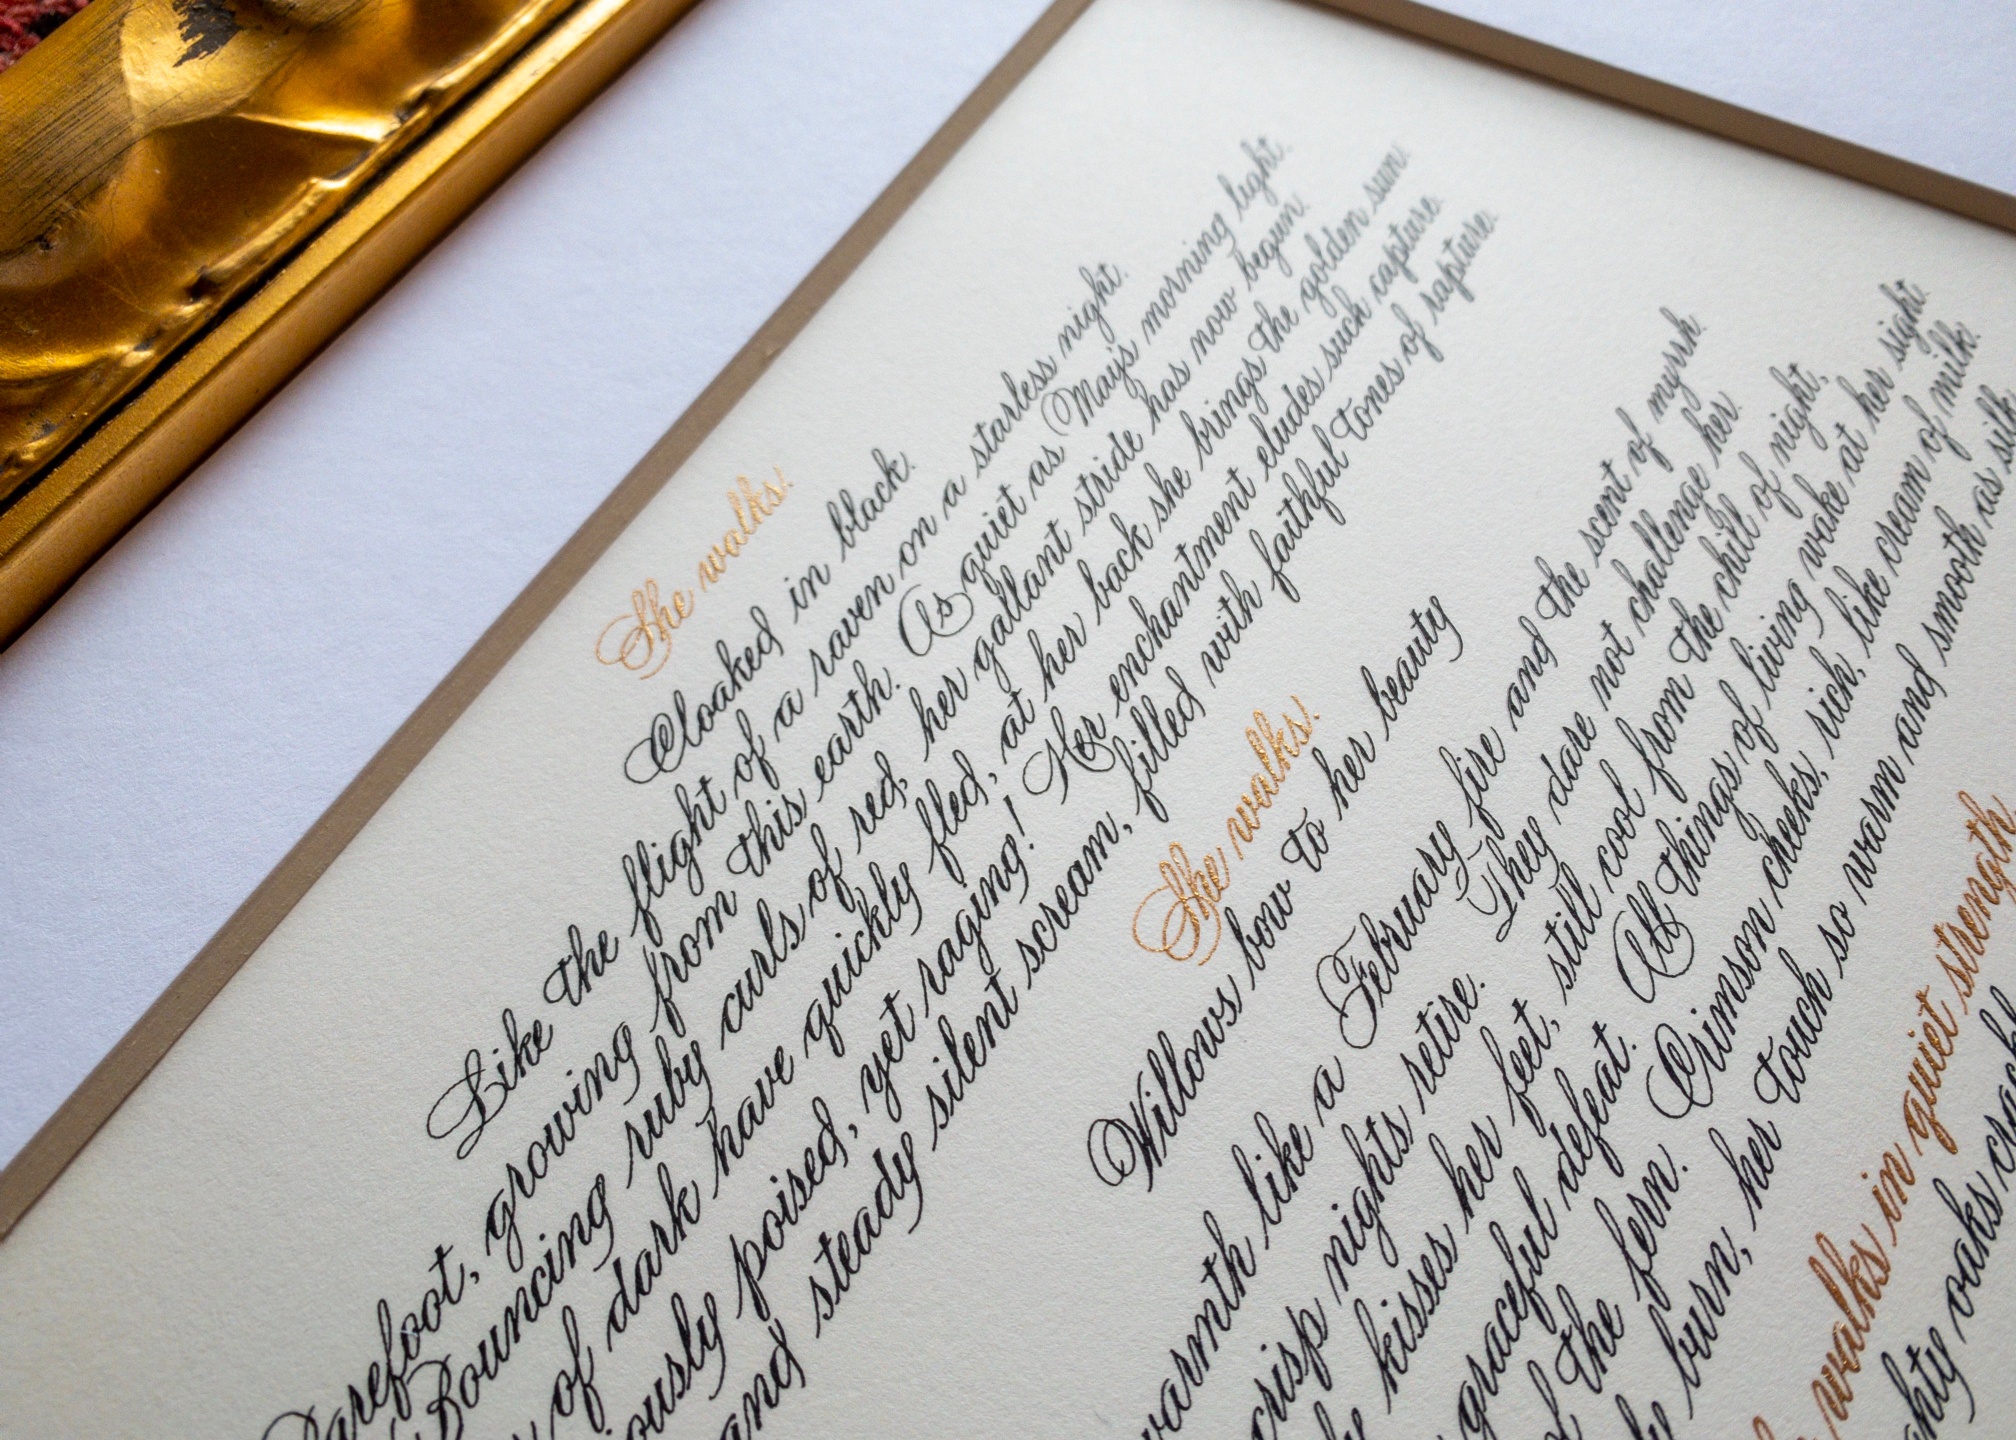 She walks.
Cloaked in black.
Like the flight of a raven on a starless night.
Barefoot, growing from this earth. As quiet as May's morning light.
Bouncing ruby curls of red, her gallant stride has now begun.
of dark have quickly fled, at her back she brings the golden sun.
poised, yet raging! Her enchantment eludes such capture.
and steady silent scream, filled with faithful tones of rapture.
She walks.
Willows bow to her beauty
warmth like a February fire and the scent of myrrh.
crisp nights retire. They dare not challenge her.
kisses her feet, still cool from the chill of night,
graceful defeat. All things of living wake at her sight.
of the fern. Crimson cheeks, rich, like cream of milk.
burn, her touch so warm and smooth as silk
walks in quiet strength
oaks